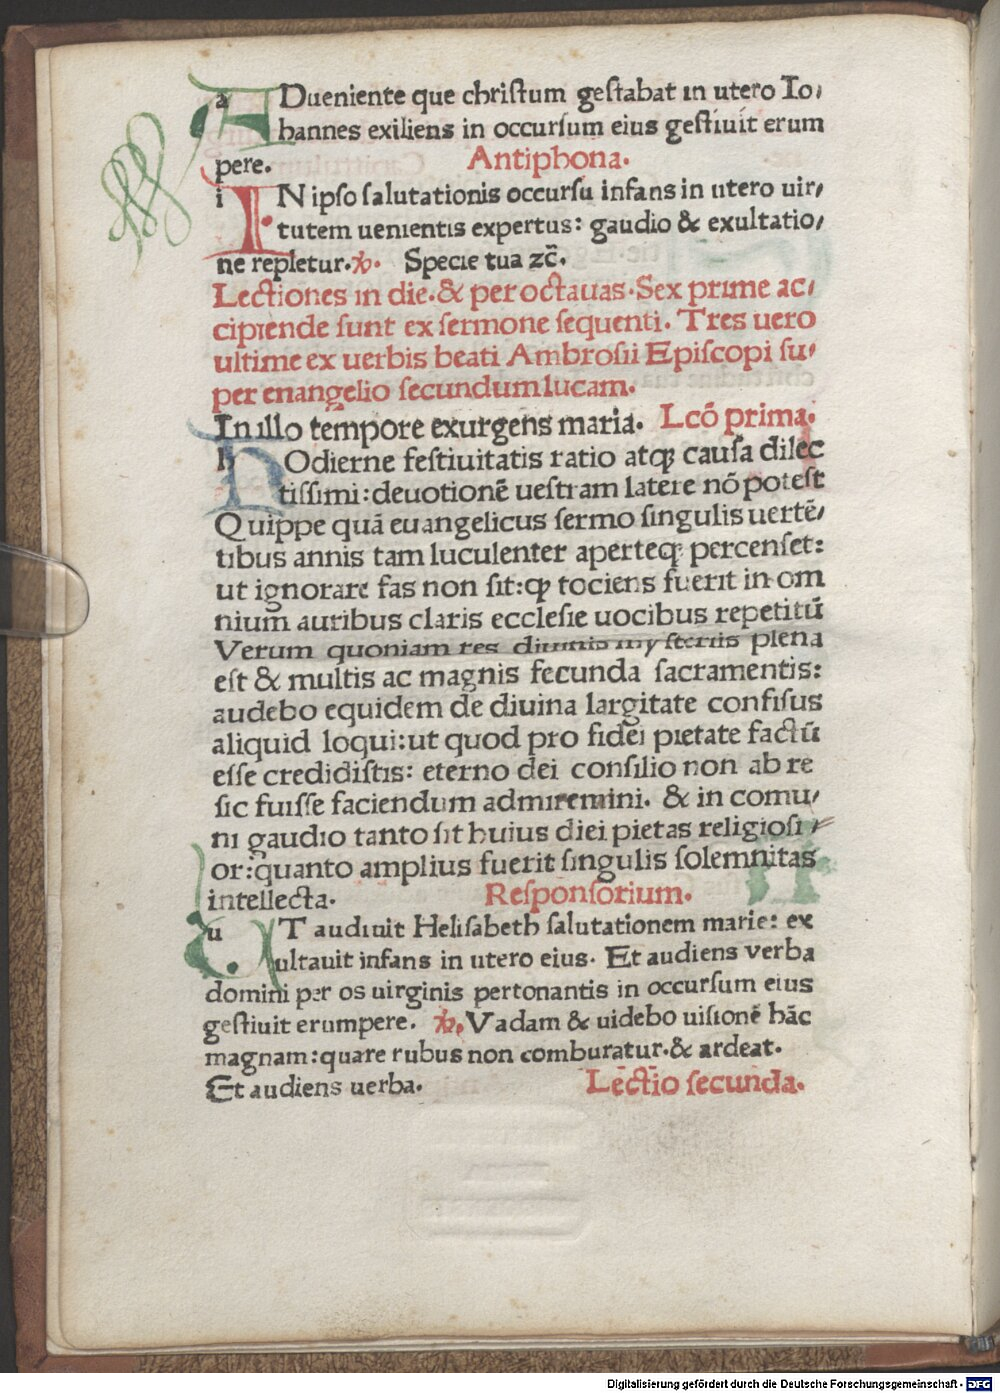 ADueniente que christum gestabat in utero Io,
hannes exiliens in occursum eius gestiuit erum
pere. Antiphona.
IN ipso salutationis occursu infans in utero uir,
tutem uenientis expertus: gaudio & exultatio,
ne repletur. ℣. Specie tua ⁊c̄.
Lectiones in die. & per octauas. Sex prime ac,
cipiende sunt ex sermone sequenti. Tres uero
ultime ex uerbis beati Ambrosii Episcopi su,
per enangelio secundum lucam.
In illo tempore exurgens maria. Lcō prima.
HOdierne festiuitatis ratio atqꝫ causa dilec
tissimi: deuotionē uestram latere nō potest
Quippe quā euangelicus sermo singulis uertē,
tibus annis tam luculenter aperteqꝫ percenset:
ut ignorare fas non sit: ꝙ tociens fuerit in om
nium auribus claris ecclesie uocibus repetitū
Verum quoniam res diuinis mysteriis plena
est & multis ac magnis fecunda sacramentis:
audebo equidem de diuina largitate confisus
aliquid loqui: ut quod pro fidei pietate factū
esse credidistis: eterno dei consilio non ab re
sic fuisse faciendum admiremini. & in comu,
ni gaudio tanto sit huius diei pietas religiosi,
or: quanto amplius fuerit singulis solemnitas
intellecta. Responsorium.
UT audiuit Helisabeth salutationem marie: ex
ultauit infans in utero eius. Et audiens verba
domini per os uirginis pertonantis in occursum eius
gestiuit erumpere. ℣. Vadam & uidebo uisionē hāc
magnam: quare rubus non comburatur. & ardeat.
Et audiens uerba. Lectio secunda.
Digitalisierung gefördert durch die Deutsche Forschungsgemeinschaft - DFG